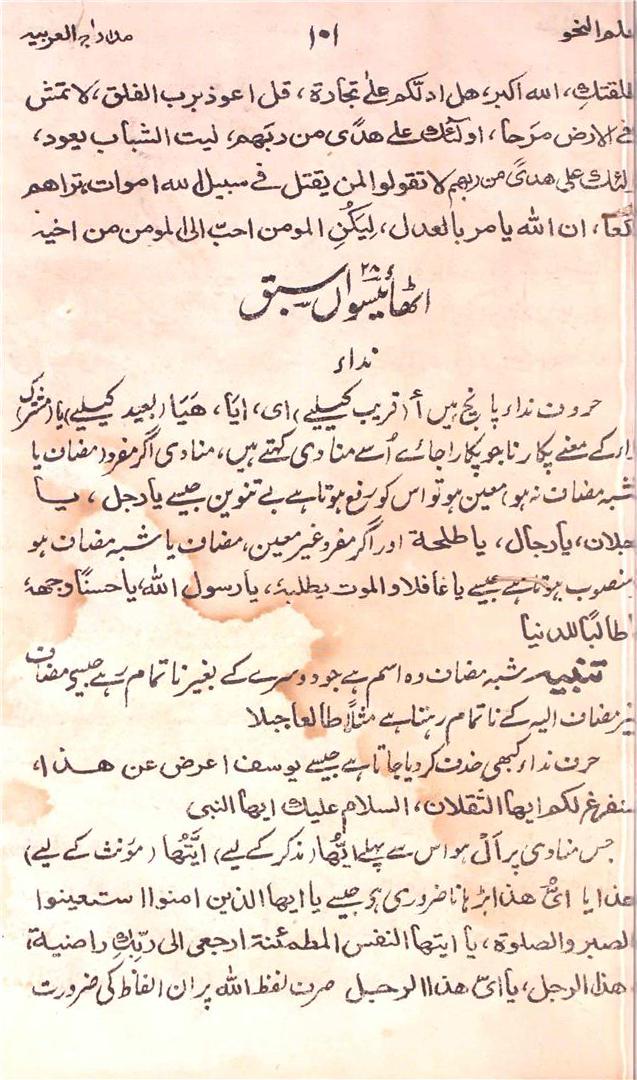 علم النحو ۱۰۱ مدارج العربیہ
خلقتك، الله اكبر، هل ادلكم على تجارة، قل اعوذ برب الفلق، لا تمش
فى الارض مرحا، اولئك على هدًى من ربهم، ليت الشباب يعود،
اولئك على هدًى من ربهم لا تقولوا لمن يقتل فى سبيل الله اموات، تراهم
ركعا، ان الله يامر بالعدل، ليكن المومن احب الى المومن من اخيه
اٹھائیسواں سبق ۲۸
نداء
حروف نداء پانچ ہیں أ (قریب کیلیے) ای، ایَا، هَیَا (بعید کیلیے) یا (مشترک)
نداء کے معنے پکارنا جو پکارا جائے اُسے منادی کہتے ہیں، منادی اگر مفرد (مضاف یا
شبہ مضاف نہ ہو) معین ہو تو اس کو رفع ہوتا ہے بے تنوین جیسے یا رجل، یا
رجلان، یا رجال، یا طلحة اور اگر مفرد غیر معین، مضاف یا شبہ مضاف ہو
منصوب ہوتا ہے جیسے یا غافلا والموت یطلبہٗ، یا رسول اللہ، یا حسنًا وجهہٗ
یا طالبًا للدنیا
تنبیہ شبہ مضاف وہ اسم ہے جو دوسرے کے بغیر ناتمام رہے جیسے مضاف
بغیر مضاف الیہ کے ناتمام رہتا ہے مثلاً طالعا جبلا
حرف نداء کبھی حذف کر دیا جاتا ہے جیسے یوسف اعرض عن هذا،
سنفرغ لکم ایها الثقلان، السلام علیك ایها النبی
جس منادی پر اَلْ ہو اس سے پہلے ایُّها (مذکر کے لیے) ایَّتُها (مؤنث کے لیے)
هذا یا ایُّ هذا بڑہانا ضروری ہو جیسے یا ایها الذین امنوا استعینوا
بالصبر والصلوة، یا ایتها النفس المطمئنة ارجعی الی ربِّكِ راضیة،
یا هذا الرجل، یا ایُّ هذا الرجل صرف لفظ اللہ پر ان الفاظ کی ضرورت